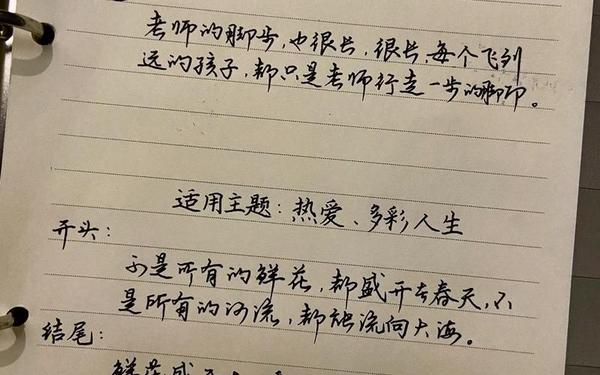 老师的脚步，也很长，很长，每个飞到
远的孩子，都只是老师行走一步的脚印。
适用主题：热爱、多彩人生
开头：
不是所有的鲜花，都盛开在春天，不
是所有的河流，都能流向大海。
结尾：
鲜花盛